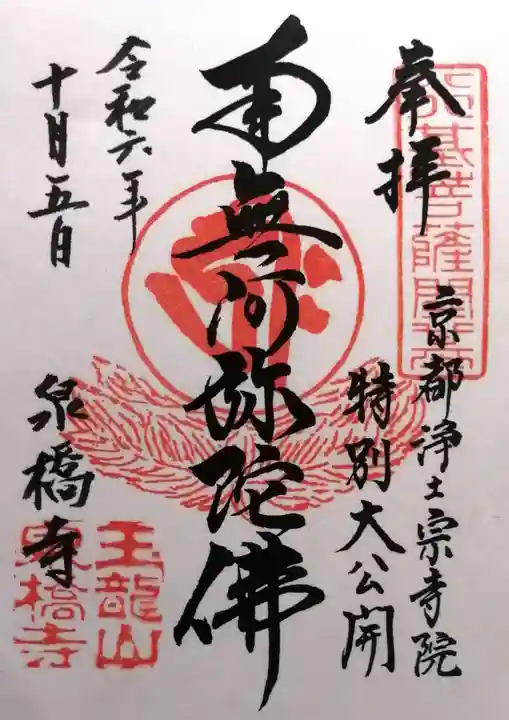 奉拝
行基菩薩開基
京都浄土宗寺院
特別大公開
南無阿弥陀佛
令和六年
十月五日
泉橋寺
玉龍山
泉橋寺